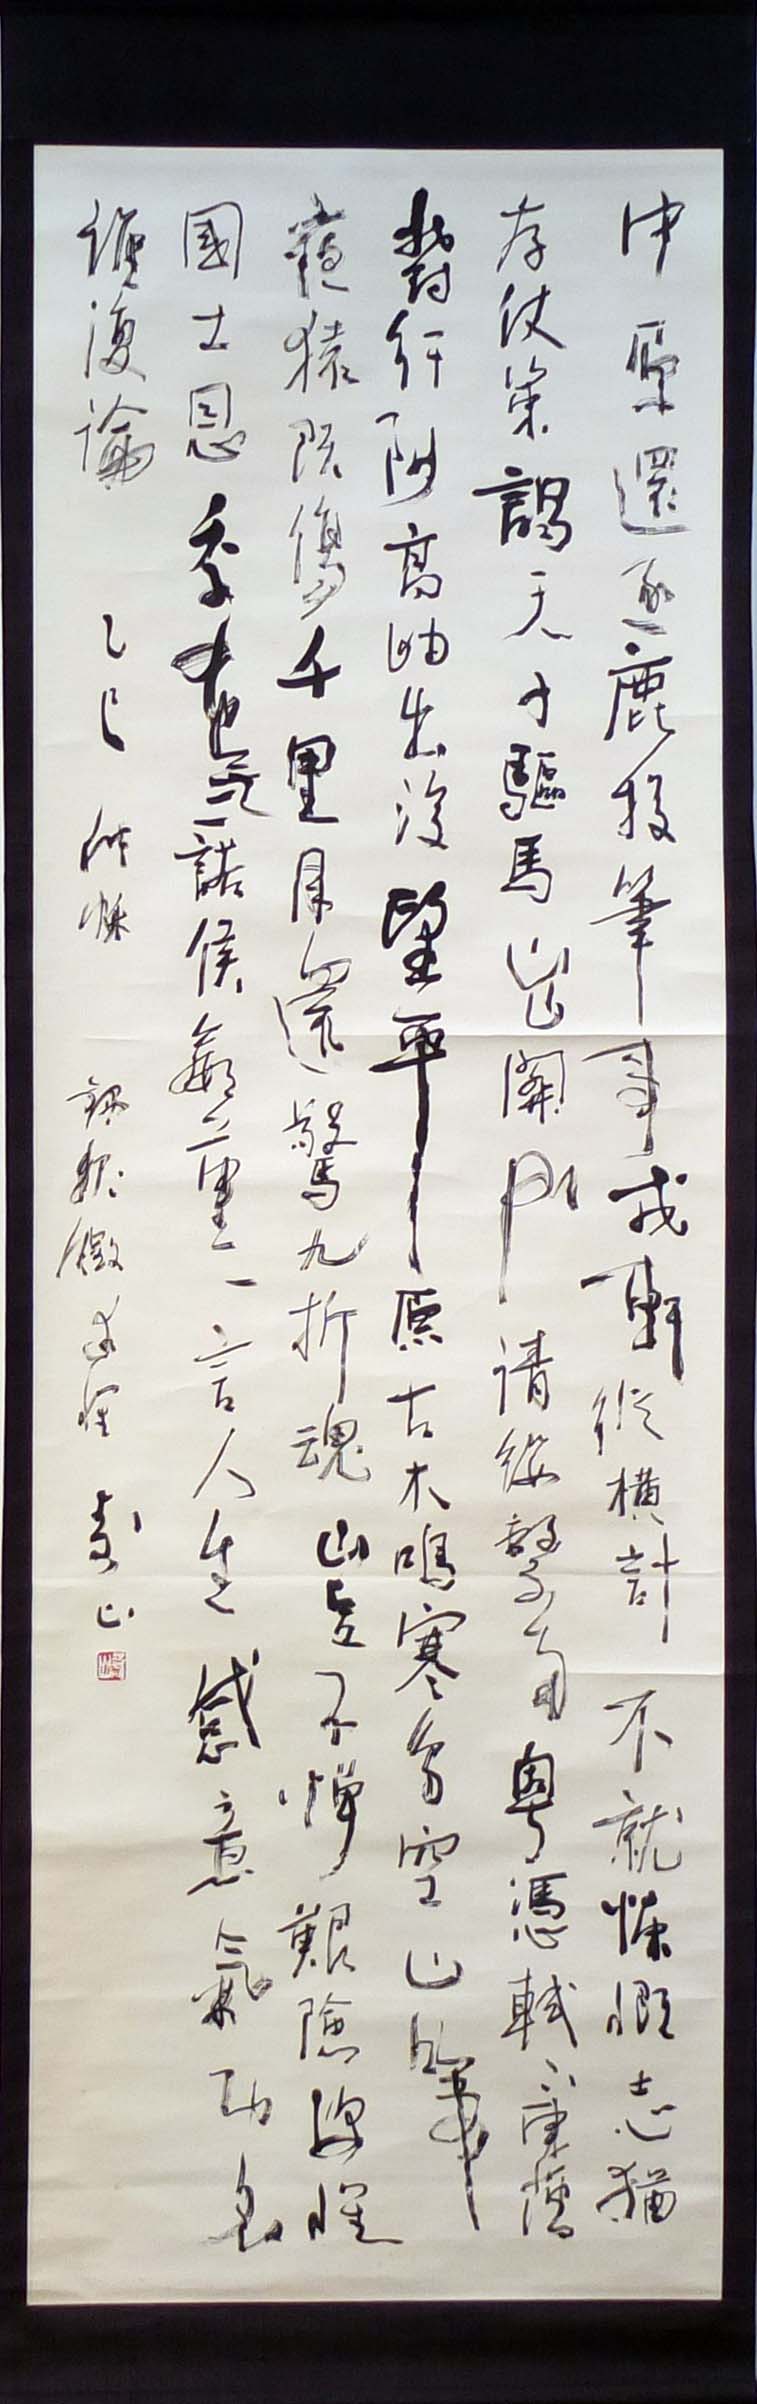 中原還逐鹿投筆事戎軒縱橫計不就慷慨志猶
存仗策謁天子驅馬出關門請纓繫南粵憑軾下東藩
鬱紆陟高岫出沒望平原古木鳴寒鳥空山啼
夜猿既傷千里目還驚九折魂豈不憚艱險深懷
國士恩季布無二諾侯嬴重一言人生感意氣功名
誰復論 乙巳 仲秋 錄魏徵述懷 山